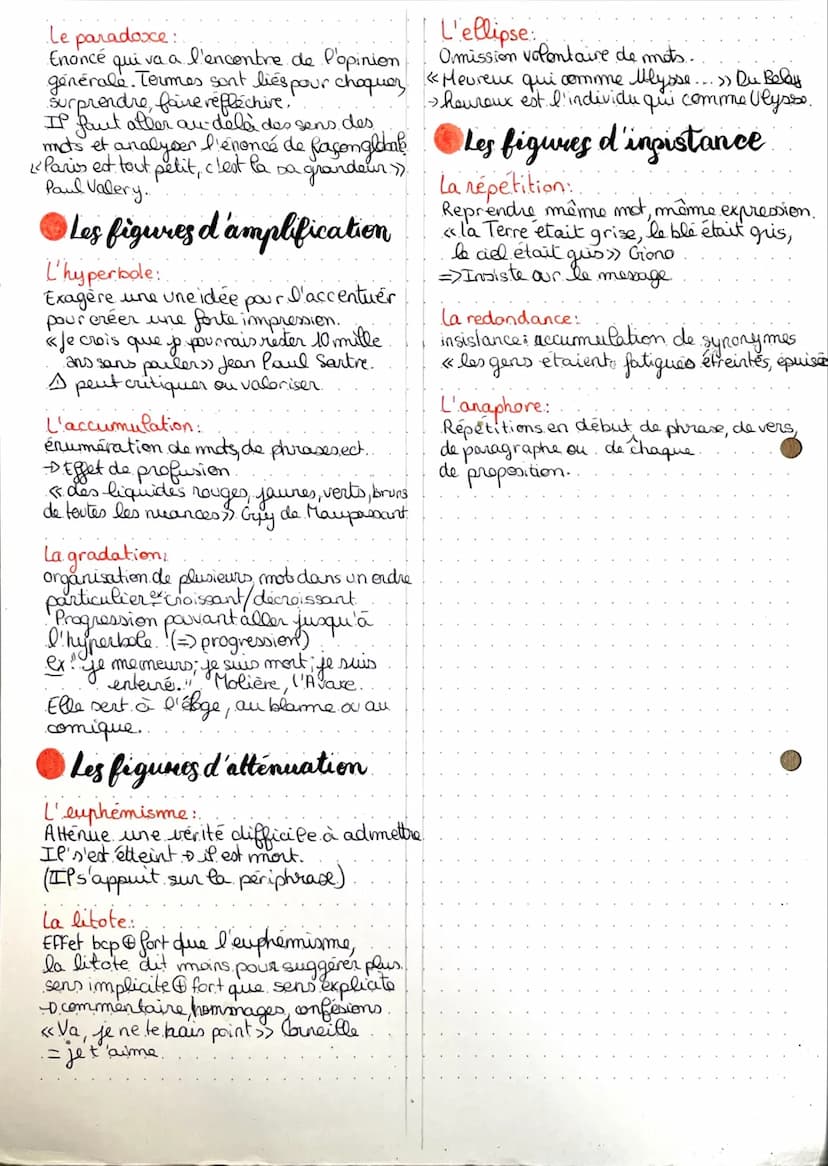 Le paradoxe :
Enoncé qui va a l'encontre de l'opinion
générale. Termes sont liés pour choquer,
surprendre, faire réfléchire.
Il faut aller au-delà des sens des
mots et analyser l'énoncé de façon globale
« Paris est tout petit, c'est la sa grandeur »
Paul Valery.
Les figures d'amplification
L'hyperbole :
Exagère une une idée pour l'accentuer
pour créer une forte impression.
« Je crois que je pourrais rester 10 mille
ans sans parler » Jean Paul Sartre.
⚠ peut critiquer ou valoriser.
L'accumulation :
énumération de mots, de phrases, ect.
→ Effet de profusion
« des liquides rouges, jaunes, verts, bruns
de toutes les nuances » Guy de Maupassant
La gradation :
organisation de plusieurs mots dans un ordre
particulier ex croissant/décroissant
Progression pouvant aller jusqu'à
l'hyperbole. (=> progression)
ex : "je me meurs ; je suis mort ; je suis
enterré." Molière, l'Avare.
Elle sert à l'éloge, au blâme ou au
comique.
Les figures d'atténuation
L'euphémisme :
Atténue une vérité difficile à admettre
Il s'est étteint → il est mort.
(Il s'appuit sur la périphrase)
La litote :
Effet bcp ⊕ fort que l'euphémisme,
la litote dit moins pour suggérer plus.
sens implicite ⊕ fort que sens explicite
→ commentaire, hommages, conféssions.
« Va, je ne te hais point » Corneille
= je t'aime.
L'ellipse :
Omission volontaire de mots.
« Heureux qui comme Ulysse... » Du Belay
→ heureux est l'individu qui comme Ulysse.
Les figures d'insistance
La répétition :
Reprendre même mot, même expression.
« la Terre était grise, le blé était gris,
le ciel était gris » Giono
=> Insiste sur le message
La redondance :
insistance : accumulation de synonymes
« les gens étaient fatigués étreintés, épuisés
L'anaphore :
Répétitions en début de phrase, de vers,
de paragraphe ou de chaque
de proposition.